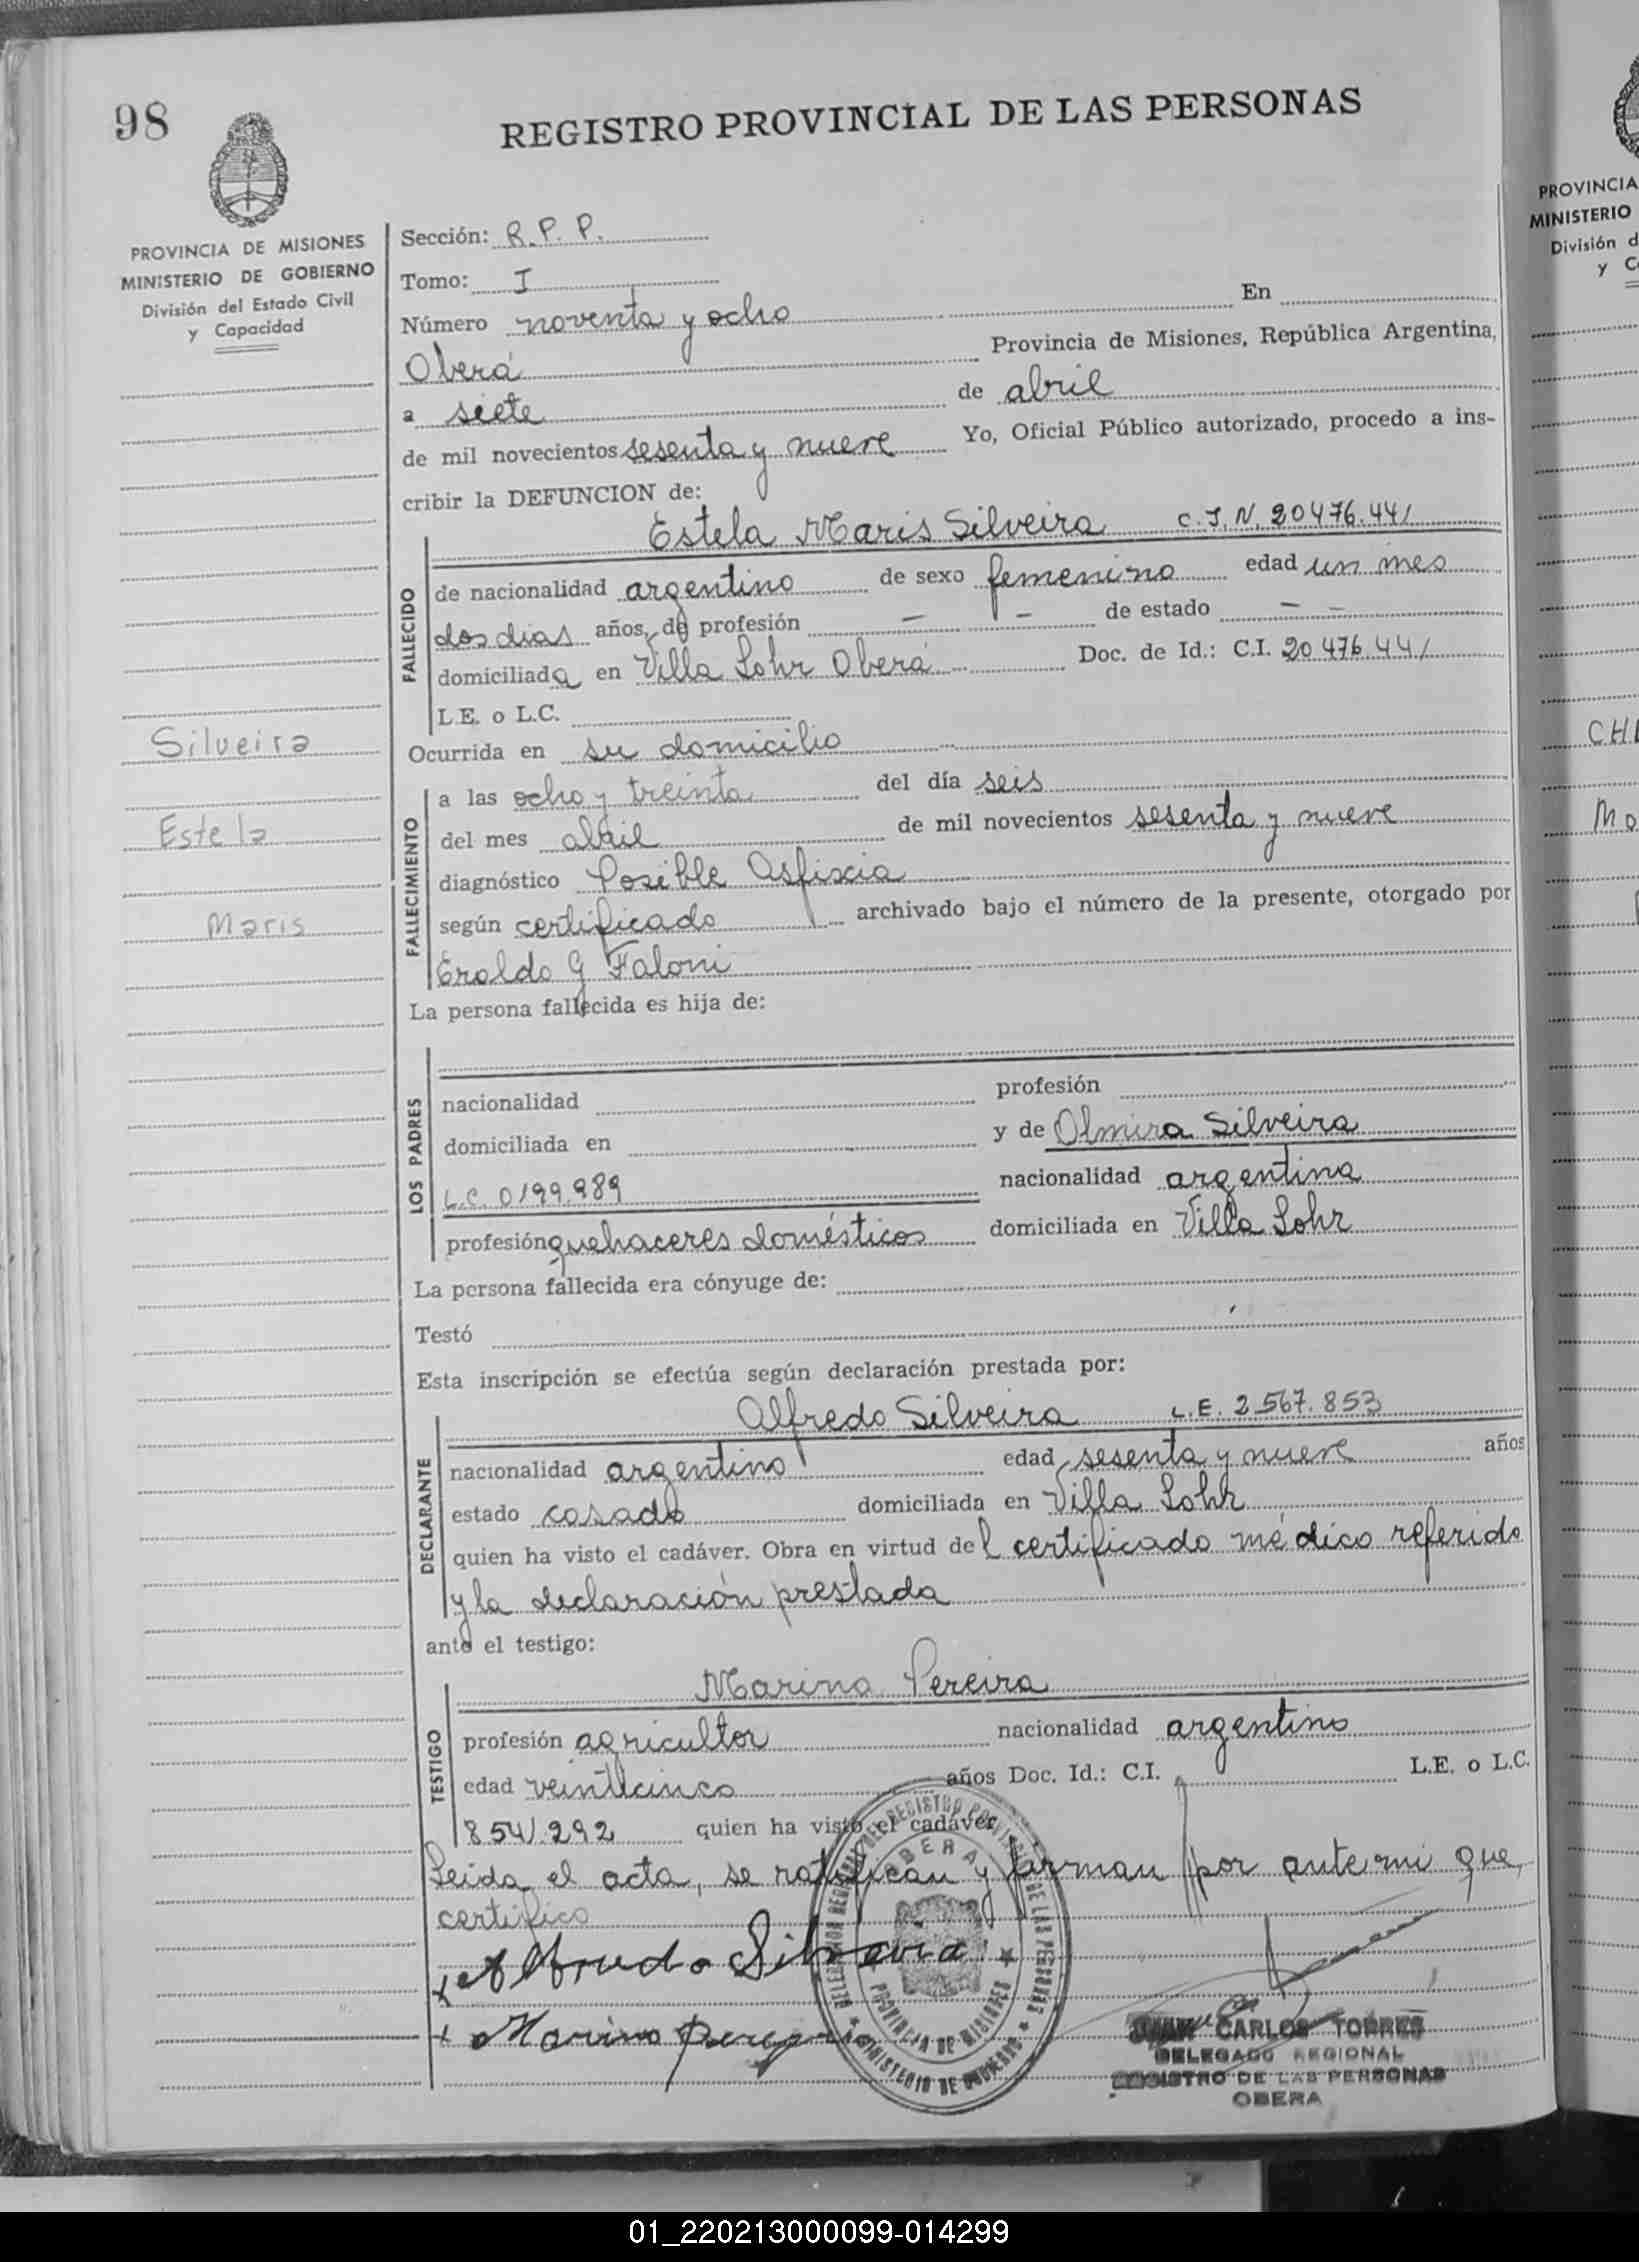 98
REGISTRO PROVINCIAL DE LAS PERSONAS
PROVINCIA DE MISIONES
MINISTERIO DE GOBIERNO
División del Estado Civil
y Capacidad
Sección: R. P. P.
Tomo: I
Número noventa y ocho En
Oberá Provincia de Misiones, República Argentina,
a siete de abril
de mil novecientos sesenta y nueve Yo, Oficial Público autorizado, procedo a ins-
cribir la DEFUNCION de:
Estela Maris Silveira C.I.N. 20476.441
FALLECIDO
de nacionalidad argentino de sexo femenino edad un mes
dos dias años, de profesión — — de estado — —
domiciliada en Villa Lohr Oberá Doc. de Id.: C.I. 20.476.441
L.E. o L.C.
Silveira
Estela
Maris
Ocurrida en su domicilio
FALLECIMIENTO
a las ocho y treinta del día seis
del mes abril de mil novecientos sesenta y nueve
diagnóstico Posible Asfixia
según certificado archivado bajo el número de la presente, otorgado por
Eraldo G Faloni
La persona fallecida es hija de:
LOS PADRES
nacionalidad profesión
domiciliada en y de Olmira Silveira
L.C. 0199.989 nacionalidad argentina
profesión quehaceres domésticos domiciliada en Villa Lohr
La persona fallecida era cónyuge de:
Testó
Esta inscripción se efectúa según declaración prestada por:
Alfredo Silveira L.E. 2.567.853
DECLARANTE
nacionalidad argentino edad sesenta y nueve años
estado casado domiciliada en Villa Lohr
quien ha visto el cadáver. Obra en virtud del certificado médico referido
y la declaración prestada
ante el testigo:
Marino Pereira
TESTIGO
profesión agricultor nacionalidad argentino
edad veinticinco años Doc. Id.: C.I. L.E. o L.C.
8541.292 quien ha visto el cadáver
Leida el acta, se ratifican y firman por ante mi que,
certifico
x Alfredo Silveira
x Marino
OBERA
PROVINCIA DE MISIONES
JUAN CARLOS TORRES
DELEGADO REGIONAL
REGISTRO DE LAS PERSONAS
OBERA
PROVINCIA
MINISTERIO
División d
y C
01_220213000099-014299